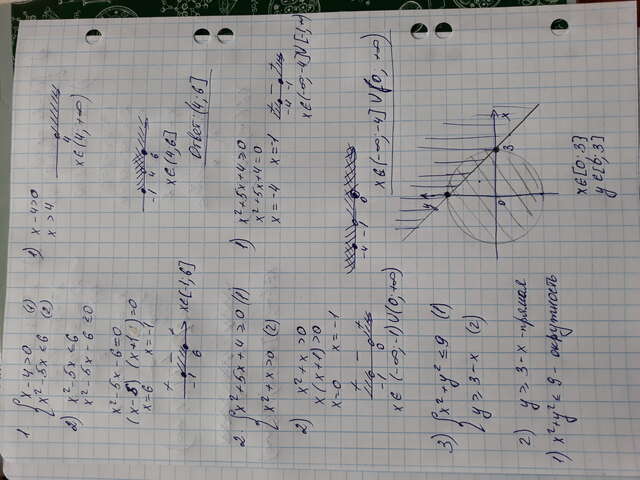 1. { x - 4 > 0 (1)
x² - 5x ≤ 6 (2)
1) x - 4 > 0
x > 4
4
x ∈ (4, +∞)
2) x² - 5x ≤ 6
x² - 5x - 6 ≤ 0
x² - 5x - 6 = 0
(x - 6) (x + 1) = 0
x = 6 x = -1
+ - +
-1 6
x ∈ [-1, 6]
-1 4 6
x ∈ (4, 6]
Ответ: (4; 6]
2. { x² + 5x + 4 ≥ 0 (1)
x² + x > 0 (2)
1) x² + 5x + 4 ≥ 0
x² + 5x + 4 = 0
x = -4 x = -1
+ - +
-4 -1
x ∈ (-∞; -4] ∪ [-1, ∞)
2) x² + x > 0
x (x + 1) > 0
x = 0 x = -1
+ - +
-1 0
x ∈ (-∞; -1) ∪ (0; +∞)
-4 -1 0
x ∈ (-∞; -4] ∪ (0, +∞)
3) { x² + y² ≤ 9 (1)
y ≥ 3 - x (2)
y
0 3 x
2) y ≥ 3 - x - прямая
1) x² + y² ≤ 9 - окружность
x ∈ [0; 3]
y ∈ [0; 3]